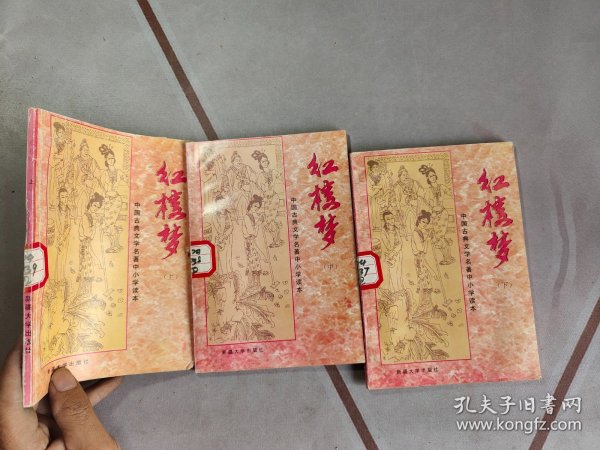 红楼梦
(上)
中国古典文学名著中小学读本
新疆大学出版社
上
红楼梦
(中)
中国古典文学名著中小学读本
新疆大学出版社
红楼梦
(下)
中国古典文学名著中小学读本
新疆大学出版社
孔夫子旧书网
www.kongfz.com